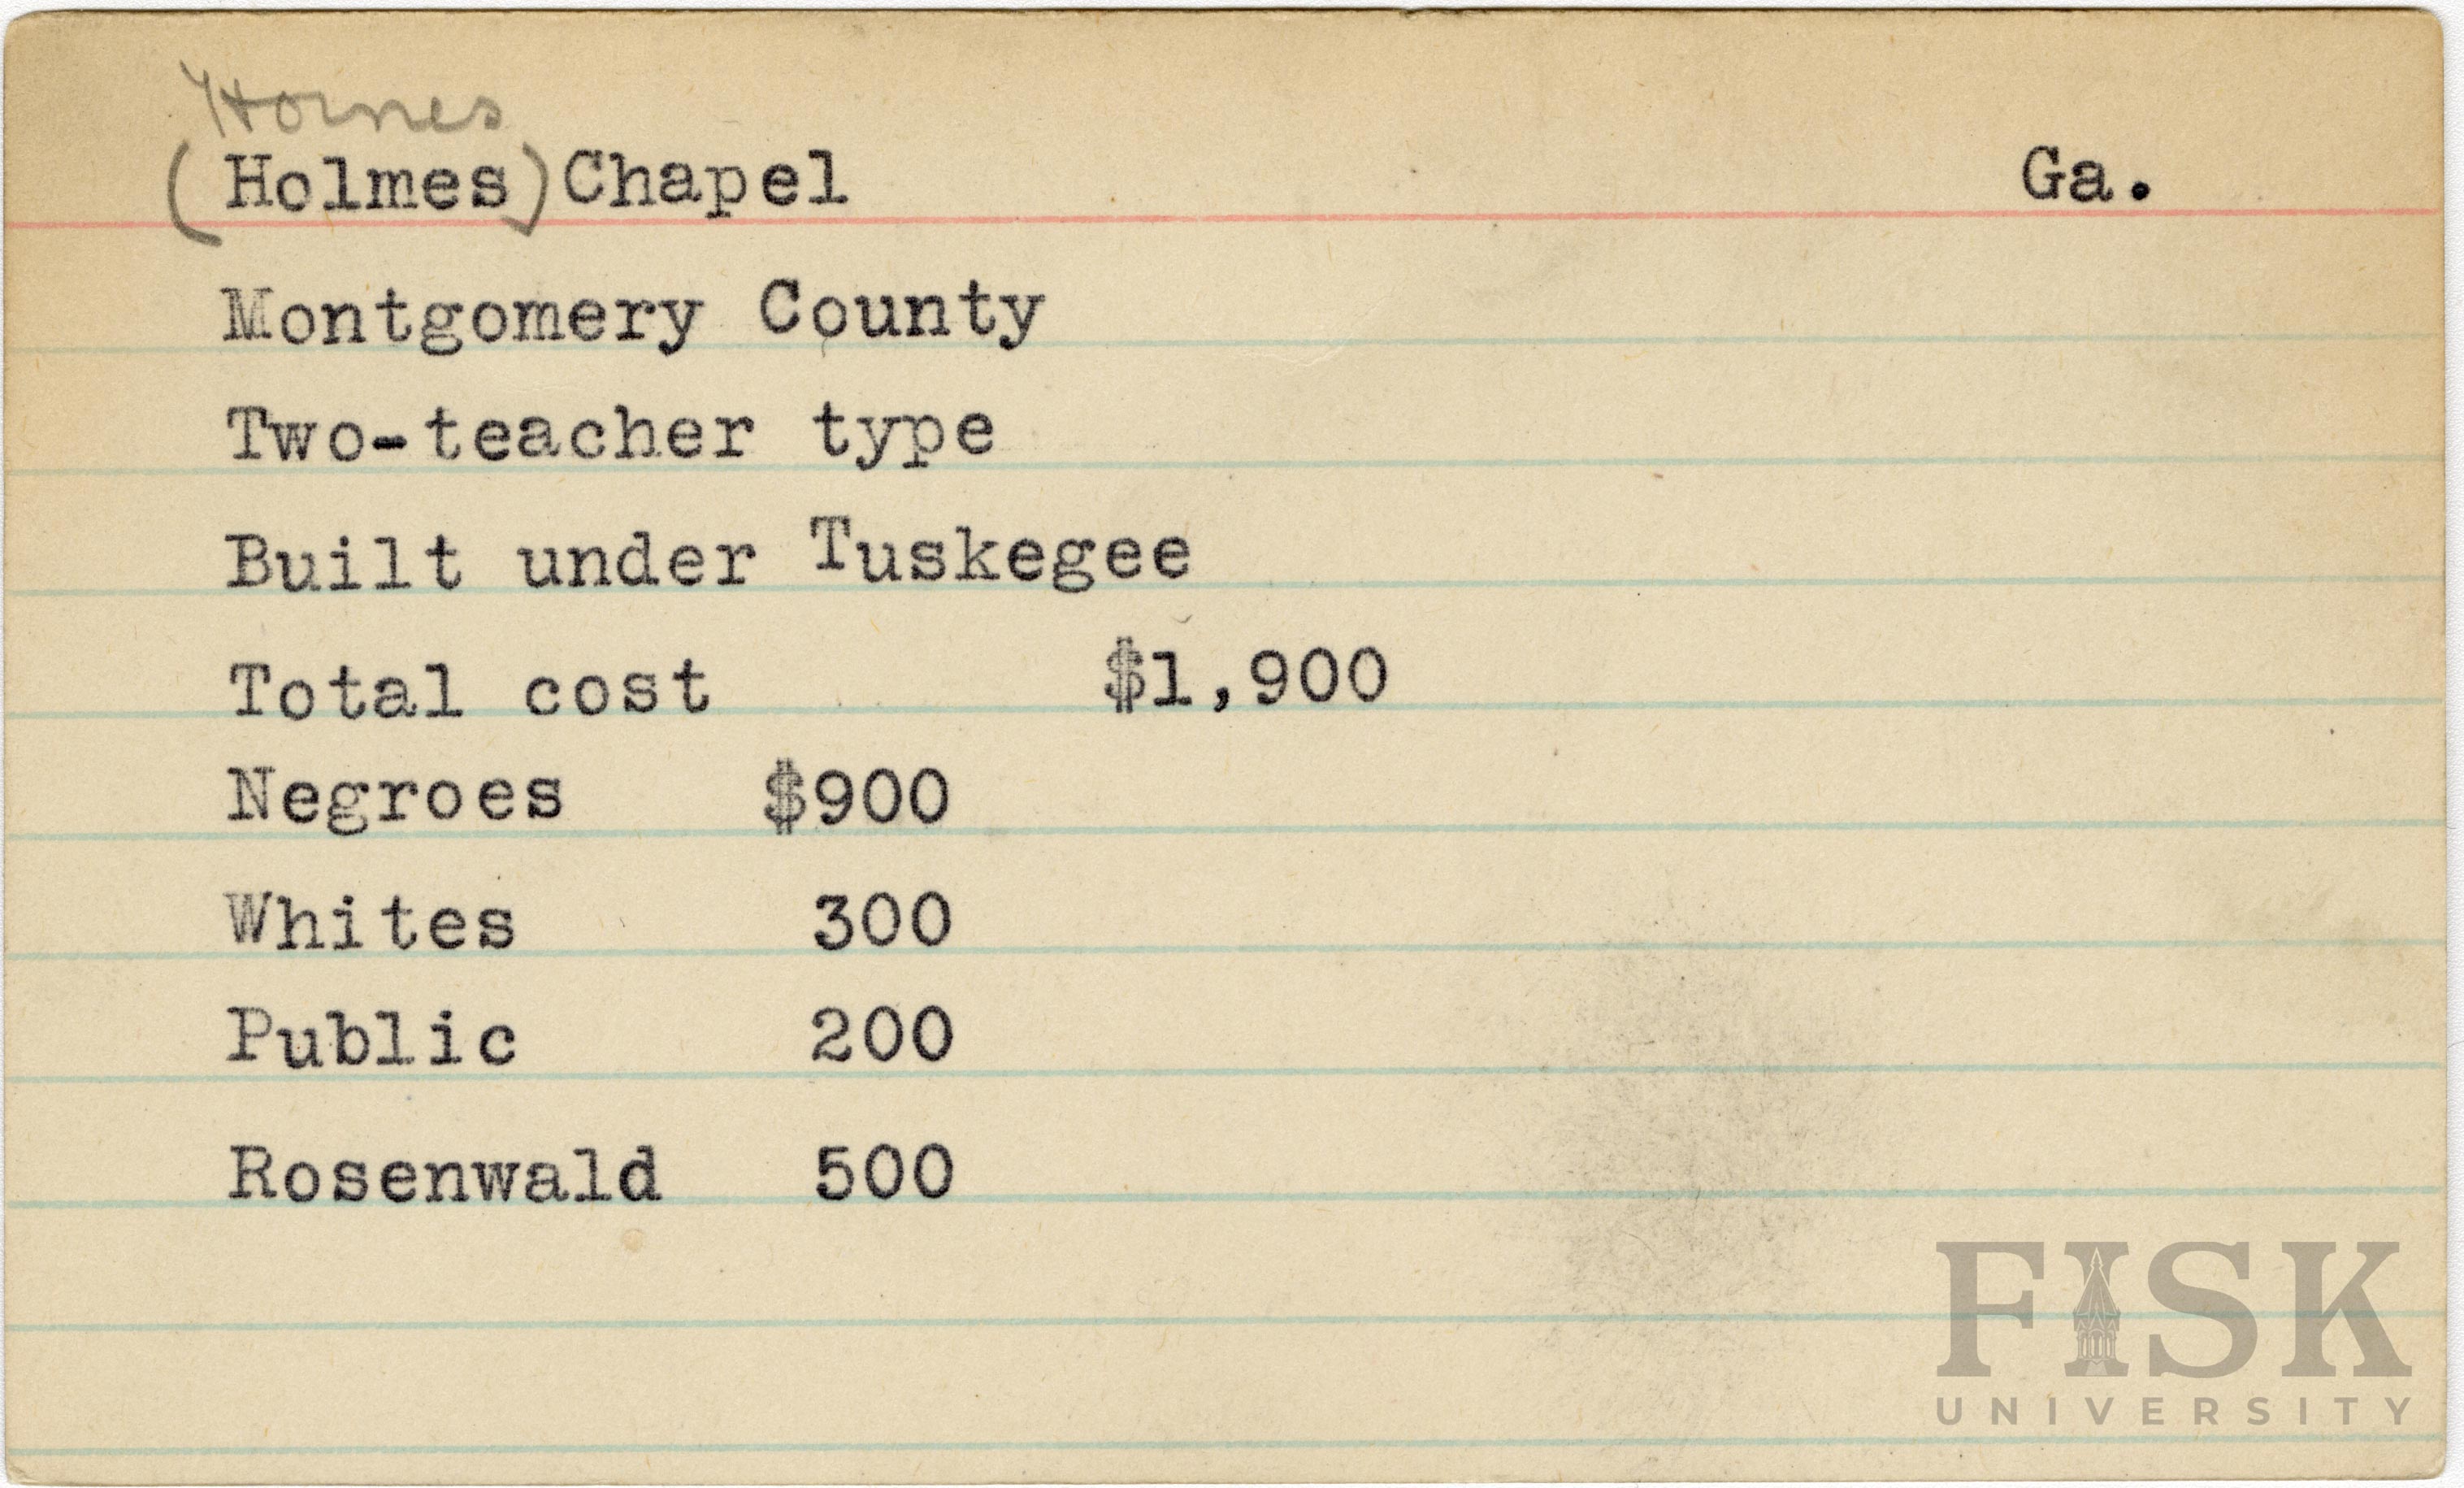 Hornes
(Holmes) Chapel Ga.
Montgomery County
Two-teacher type
Built under Tuskegee
Total cost $1,900
Negroes $900
Whites 300
Public 200
Rosenwald 500
FISK
UNIVERSITY